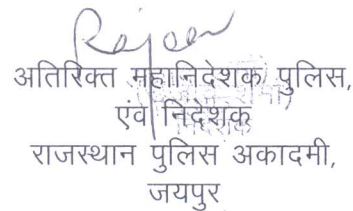 अतिरिक्त महानिदेशक पुलिस,
एंव निदेशक
राजस्थान पुलिस अकादमी,
जयपुर